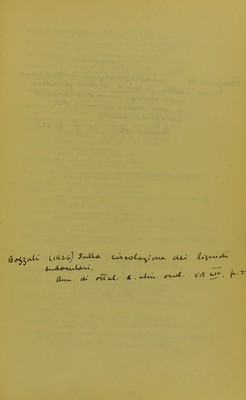 Bozzoli (1926) Sulla circolazione dei liquidi
endoculari.
Ann. di ottal. e. clin. ocul. Vol LIV. p.